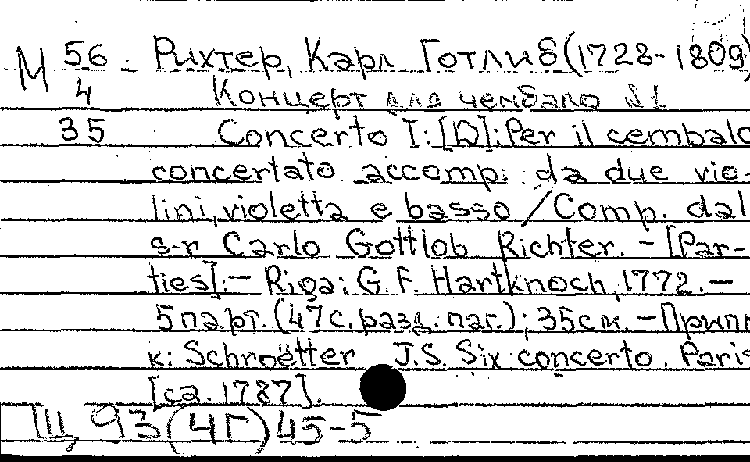 М 56 Рихтер, Карл Готлиб (1728-1809)
4 Концерт для чембало №1
35 Concerto I: [D]: Per il cembalo
concertato accomp. da due vio-
lini, violetta e basso / Comp. dal
s-r Carlo Gottlob Richter. - [Par-
ties]. - Riga: G. F. Hartknoch, 1772. -
5 парт. (47 с. разд. паг.); 35 см. - Припл.
к: Schroetter J. S. Six concerto. Paris
[ca. 1787].
Щ 93(4Г)45-5